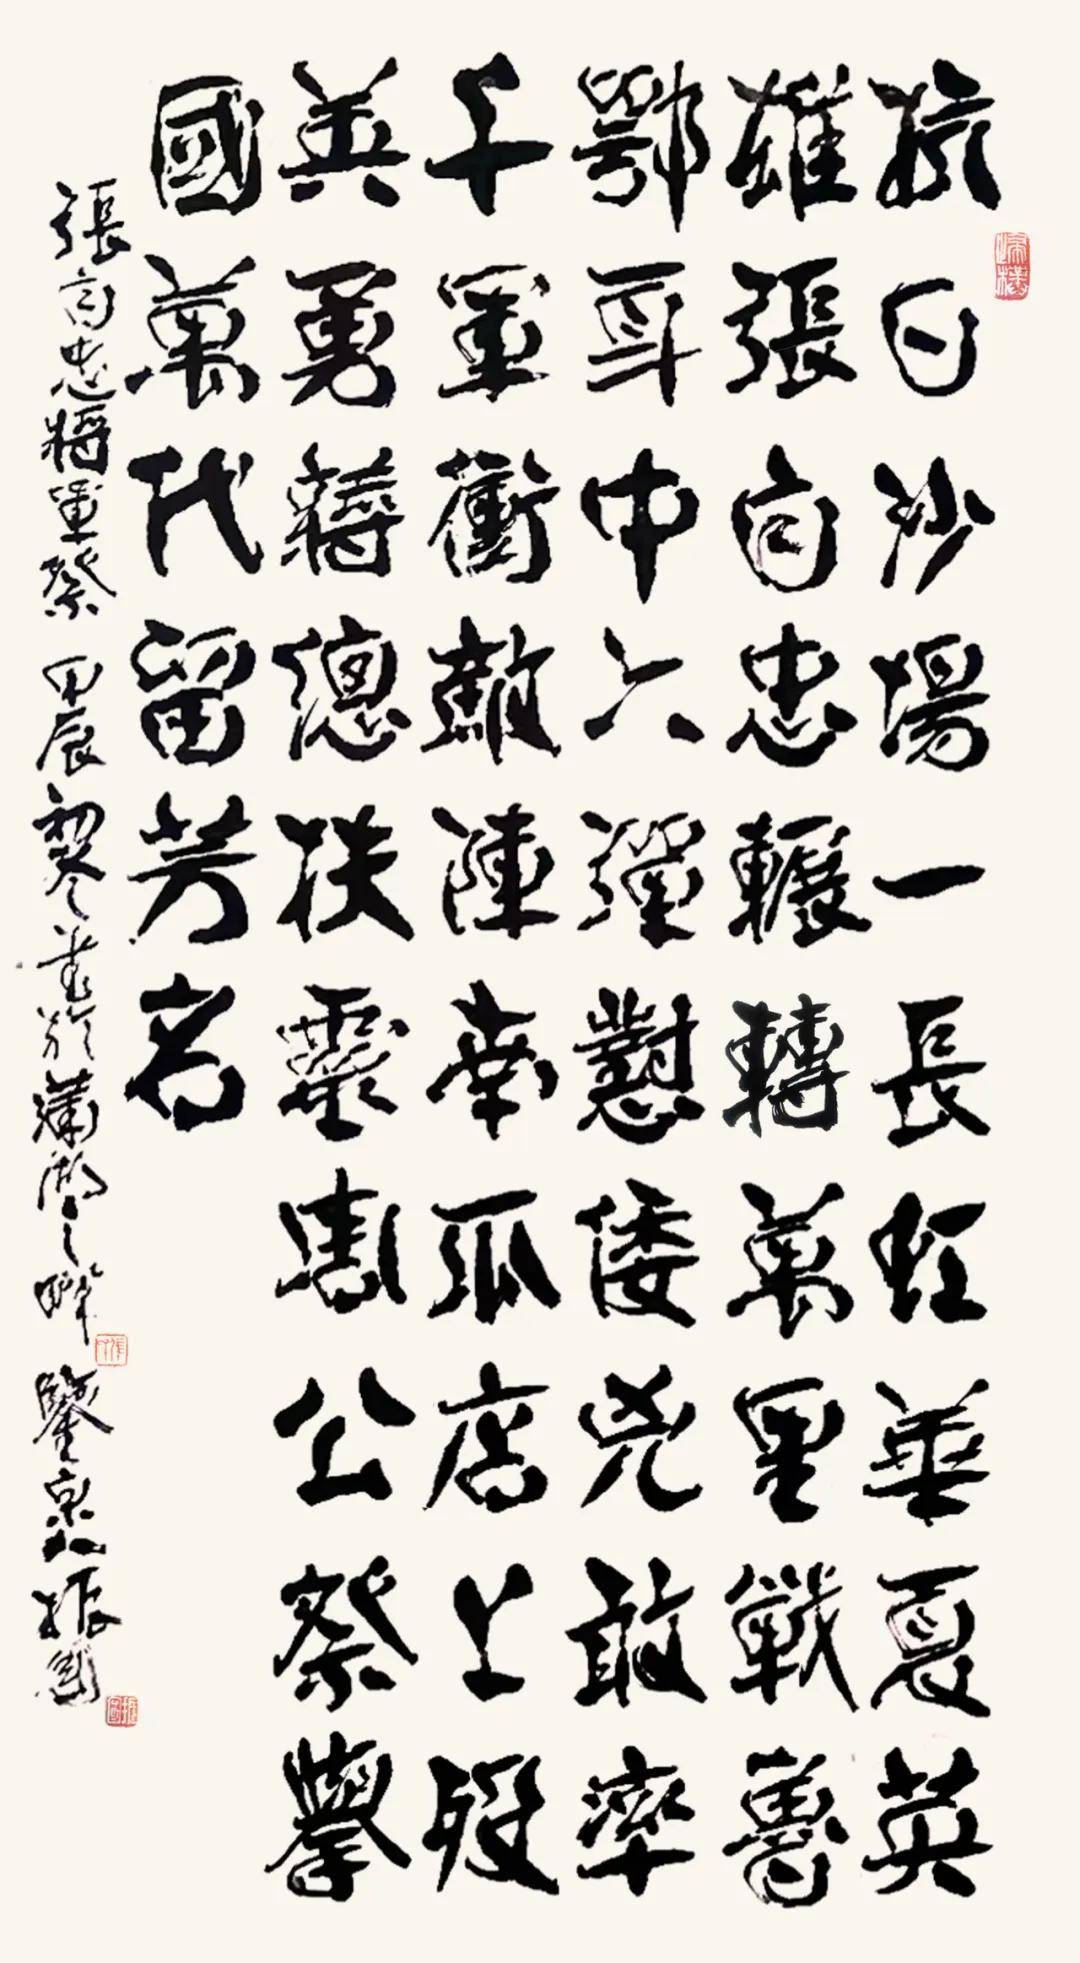 抗日沙場一長虹華夏英
雄張自忠輾轉萬里戰魯
鄂耳中六彈懟倭兇敢率
千軍衝敵陣南瓜店上歿
英勇蔣總扶靈周公祭舉
國萬代留芳名
張自忠將軍祭 甲辰初冬書於蒲湖之畔 鑒泉 振國